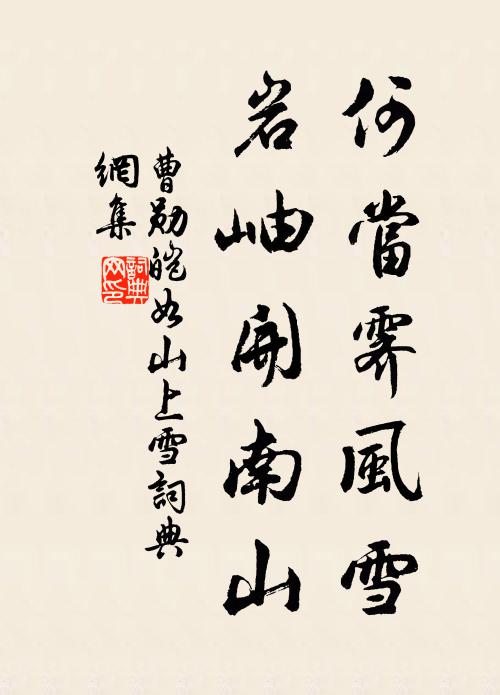 何當霽風雪
岩岫開南山
曹勛皚如山上雪詞典
網集
詞典
网印